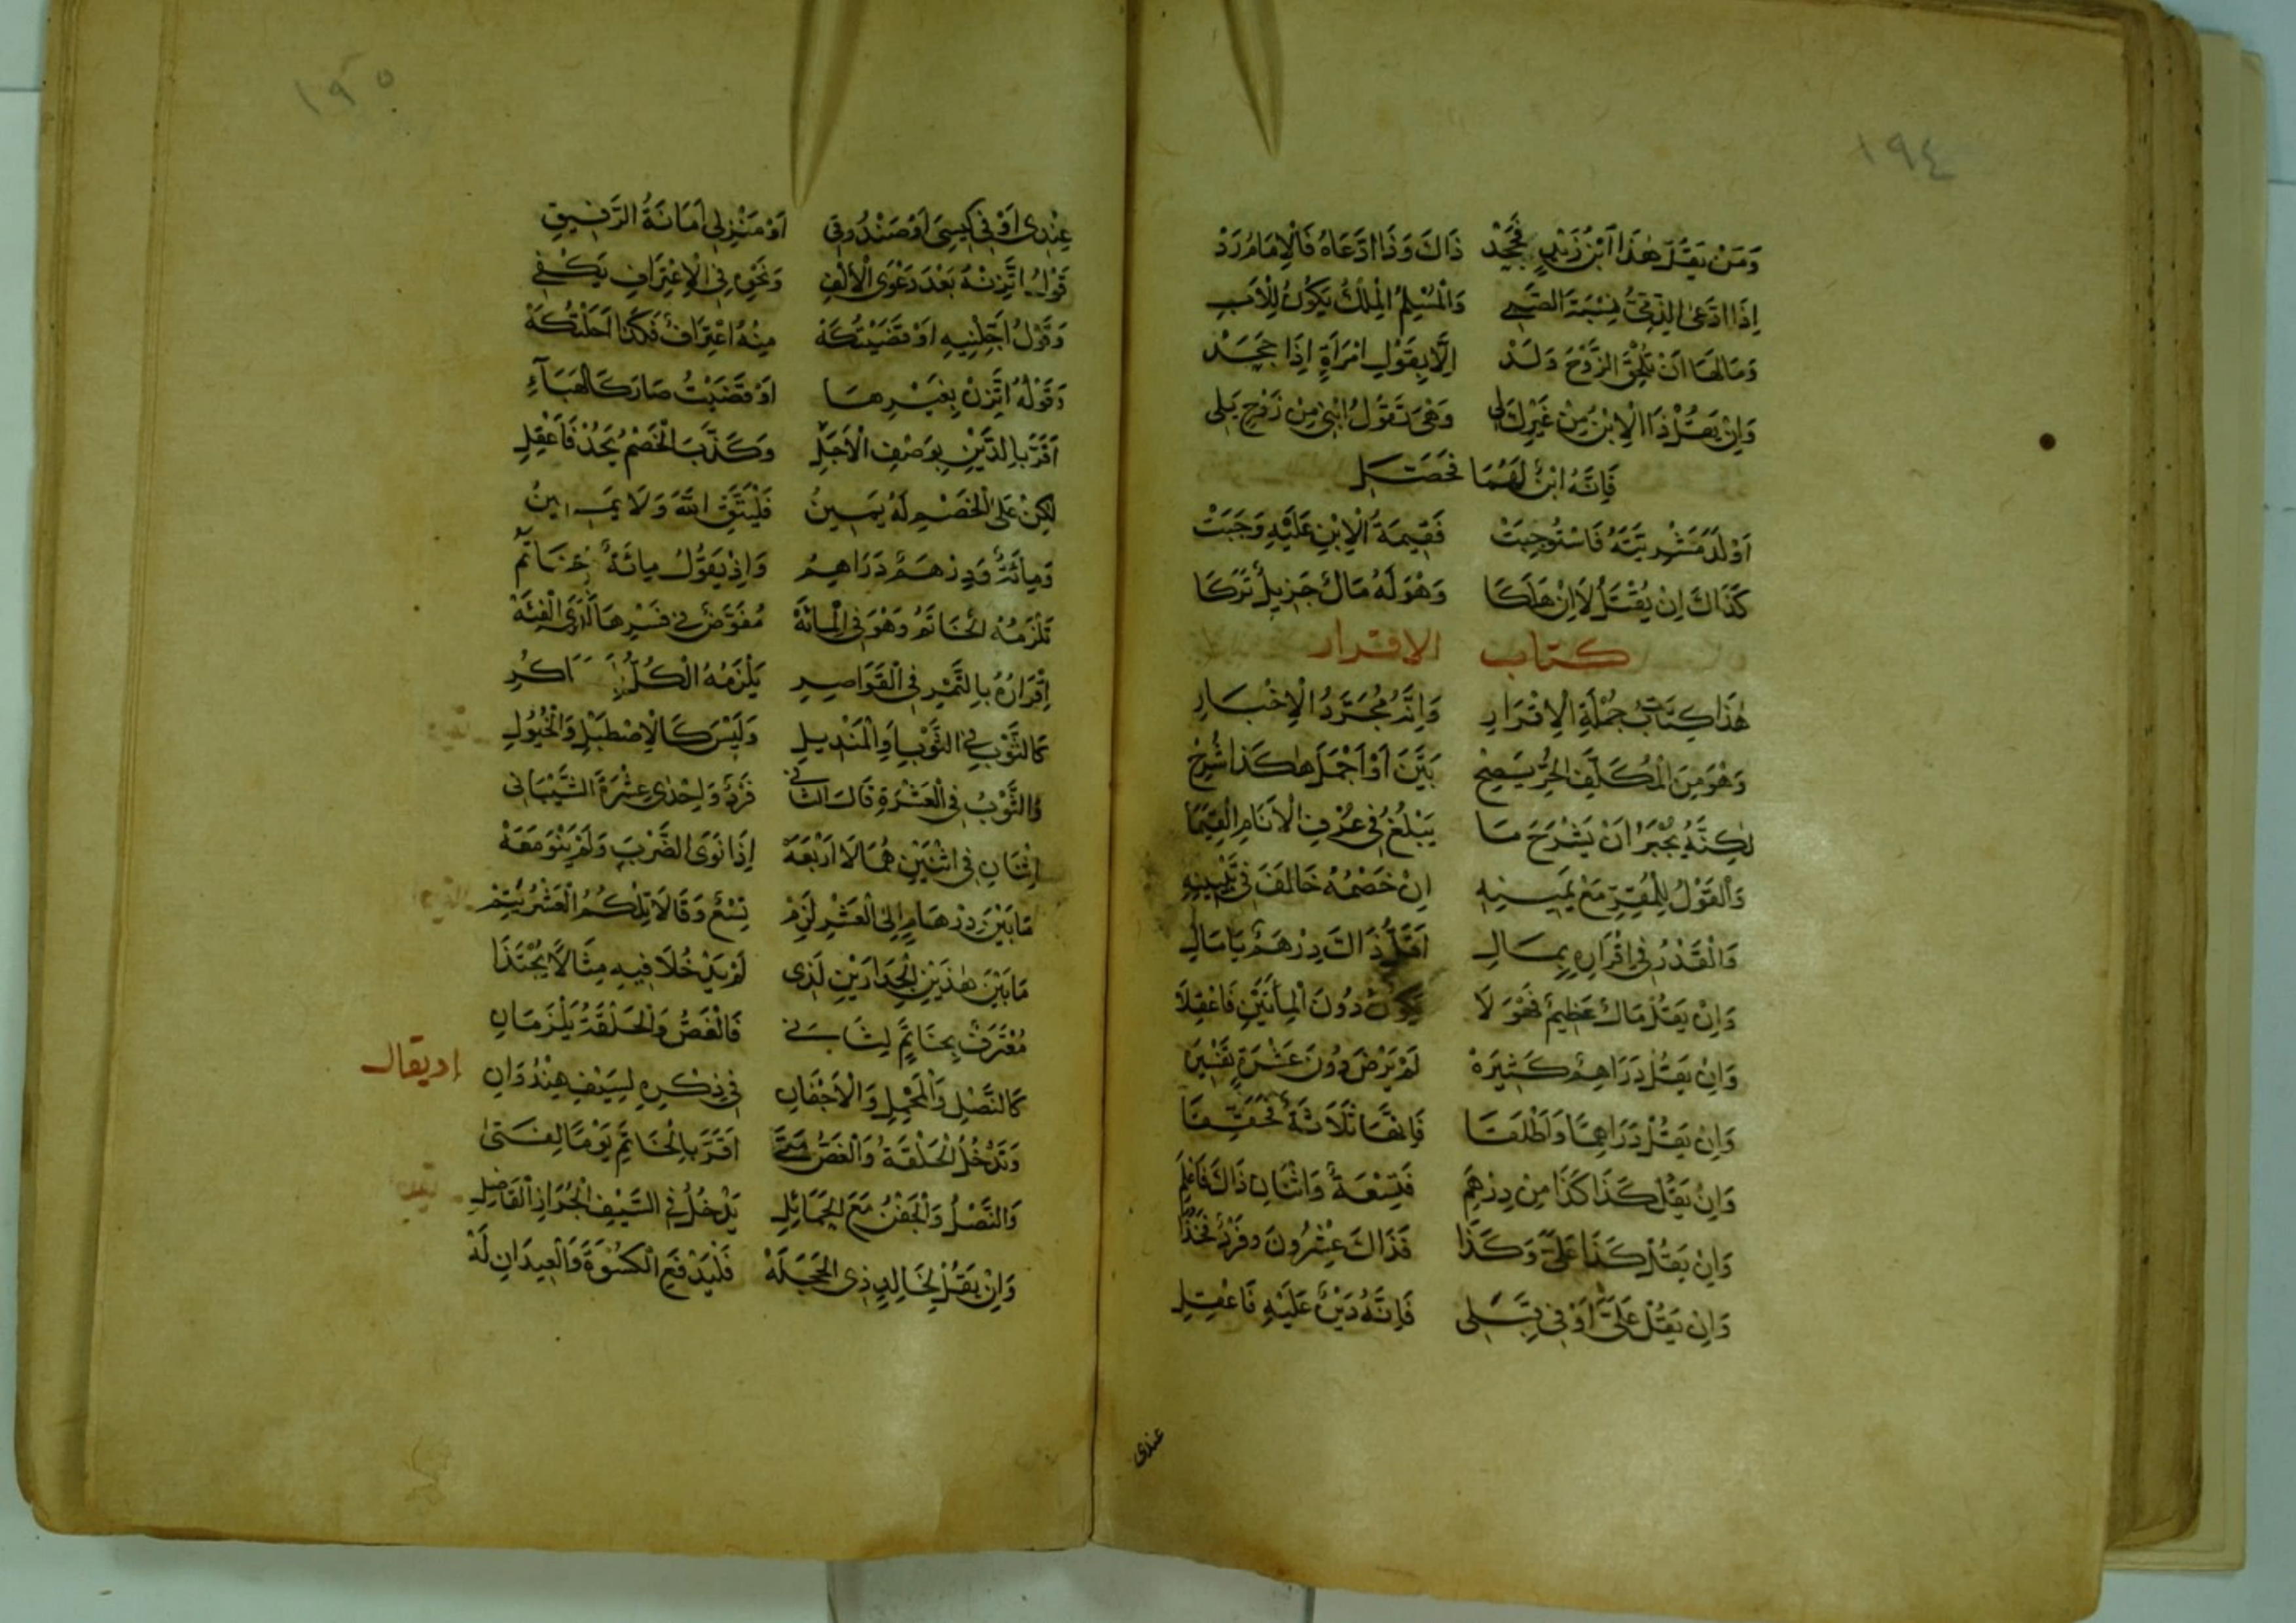 ١٩٤
وَمَنْ يَقُلْ هٰذَا ابْنُ زَيْدٍ فَجَحَدْ ذَاكَ وَذَا ادَّعَاهُ فَالْاِمَامُ رَدْ
اِذَا ادَّعَى الذِّمِّيُّ نِسْبَةَ الصَّبِي وَالْمُسْلِمُ الْمِلْكَ يَكُونُ لِلْاَبِ
وَمَا لَهَا اَنْ تُلْحِقَ الزَّوْجَ وَلَدْ اِلَّا بِقَوْلِ امْرَأَةٍ اِذَا جَحَدْ
وَاِنْ يَقُلْ ذَا الْاِبْنُ مِنْ غَيْرِكِ لِي وَهْيَ تَقُولُ ابْنِي مِنْ زَوْجٍ يَلِي
فَاِنَّهُ ابْنٌ لَهُمَا فَحَصِّلِ
اَوْلَدَ مُشْرِيَّتَهُ فَاسْتُوجِبَتْ فَقِيمَةُ الْاِبْنِ عَلَيْهِ وَجَبَتْ
كَذَاكَ اِنْ يُقْتَلْ لَا اِنْ هَلَكَا وَهْوَ لَهُ مَالٌ جَزِيلٌ تَرَكَا
كتاب الاقرار
هٰذَا كِتَابُ جُمْلَةِ الْاِقْرَارِ وَاِنَّهُ مُجَرَّدُ الْاِخْبَارِ
وَهْوَ مِنَ الْمُكَلَّفِ الْحُرِّ يَصِحْ بَيَّنَ اَوْ اَجْمَلَ هٰكَذَا شُرِحْ
لٰكِنَّهُ يُجْبَرُ اَنْ يَشْرَحَ مَا يَبْلُغُ فِي عُرْفِ الْاَنَامِ الْقِيَمَا
وَالْقَوْلُ لِلْمُقِرِّ مَعْ يَمِينِهِ اِنْ خَصْمُهُ خَالَفَ فِي تَبْيِينِهِ
وَالْقَدْرُ فِي اِقْرَارِهِ بِمَالِ اَقَلُّ ذَاكَ دِرْهَمٌ يَا مَالِ
وَاِنْ يَقُلْ مَالٌ عَظِيمٌ فَهْوَ لَا يَكُونُ دُونَ الْمِائَتَيْنِ فَاعْقِلَا
وَاِنْ يَقُلْ دَرَاهِمٌ كَثِيرَهْ لَمْ يَرْضَ دُونَ عَشْرَةٍ
وَاِنْ يَقُلْ دَرَاهِمًا وَاَطْلَقَا فَاِنَّهَا ثَلَاثَةٌ
وَاِنْ يَقُلْ كَذَا كَذَا مِنْ دِرْهَمِ فَتِسْعَةٌ وَاثْنَانِ ذَاكَ فَاعْلَمِ
وَاِنْ يَقُلْ كَذَا عَلَيَّ وَكَذَا فَذَاكَ عِشْرُونَ وَفَرْدٌ فَخُذَا
وَاِنْ يَقُلْ عَلَيَّ اَوْ فِي قِبَلِي فَاِنَّهُ دَيْنٌ عَلَيْهِ فَاعْقِلِ
عندى
١٩٥
عِنْدِى اَوْ فِي كِيسِيَ اَوْ صَنْدُوقِي اَوْ مَنْزِلِي اَمَانَةُ الرَّفِيقِ
قَوْلُ اتَّزِنْهُ بَعْدَ دَعْوَى الْاَلْفِ وَنَحْوِهِ فِي الْاِعْتِرَافِ يَكْفِي
وَقَوْلُ اَجِّلْنِيهِ اَوْ قَضَيْتُكَهْ مِنْهُ اعْتِرَافٌ فَكَذَا اَحَلْتُكَهْ
وَقَوْلُهُ اتَّزِنْ بِغَيْرِهَا اَوْ قَضَيْتُ صَارَ كَالْهَبَاءِ
اَقَرَّ بِالدَّيْنِ بِوَصْفِ الْاَجَلِ وَكَذَّبَ الْخَصْمُ يَحُدْ فَاعْقِلِ
لٰكِنْ عَلَى الْخَصْمِ لَهُ يَمِينُ فَلْيَتَّقِ اللّٰهَ وَلَا يَمِينُ
وَمِائَةٌ وَدِرْهَمٌ دَرَاهِمُ وَاِذْ يَقُولُ مِائَةٌ وَخَاتَمُ
تَلْزَمُهُ الْخَاتَمُ وَهْوَ فِي الْمِائَهْ مُفَوَّضٌ فِي فَسْرِهَا لَدَى الْفِئَهْ
اِقْرَارُهُ بِالتَّمْرِ فِي الْقَوَاصِرِ يَلْزَمُهُ الْكُلُّ
كَالثَّوْبِ فِي الثَّوْبِ اَوِ الْمَنْدِيلِ وَلَيْسَ كَالْاِصْطَبْلِ وَالْخُيُولِ
وَالثَّوْبُ فِي الْعَشْرَةِ قَالَ الثَّانِي فَرْدٌ وَاِحْدٰى عِشْرَةَ الشَّيْبَانِي
اِثْنَانِ فِي اثْنَيْنِ هُمَا لَا اَرْبَعَهْ اِذَا نَوَى الضَّرْبَ وَلَمْ يَنْوِ مَعَهْ
مَا بَيْنَ دِرْهَامٍ اِلَى الْعَشْرِ لَزِمْ تِسْعٌ وَقَالَا تِلْكُمُ الْعَشْرُ تَتِمْ
مَا بَيْنَ هٰذَيْنِ الْجِدَارَيْنِ لِذِى لَمْ يَدْخُلَا فِيهِ مِثَالًا يُحْتَذَا
مُعْتَرَفٌ بِخَاتِمٍ لِثَانِي فَالْفَصُّ وَالْحَلْقَةُ يَلْزَمَانِ
كَالنَّصْلِ وَالْمَحْمِلِ وَالْاَجْفَانِ فِي ذِكْرِهِ لِسَيْفِ هِنْدُوَانِ
او يقال
وَتَدْخُلُ الْحَلْقَةُ وَالْفَصُّ مَتَى اَقَرَّ بِالْخَاتِمِ يَوْمًا لِفَتَى
وَالنَّصْلُ وَالْجَفْنُ مَعَ الْحَمَائِلِ يَدْخُلُ فِي السَّيْفِ الْجُرَازِ الْفَاصِلِ
وَاِنْ يَقُلْ لِخَالِدٍ ذِى الْحَجَلَهْ فَلْيَدْفَعِ الْكِسْوَةَ وَالْعِيدَانِ لَهْ